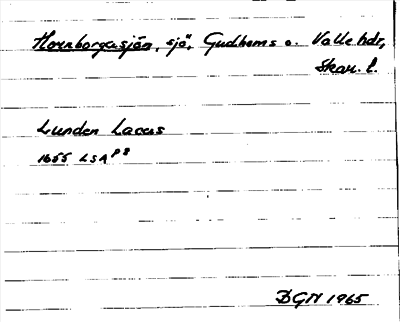 Hornborgasjön, sjö, Gudhems o. Valle hdr,
Skar. l.
Lunden Lacus
1655 LSA P8
DGN 1965